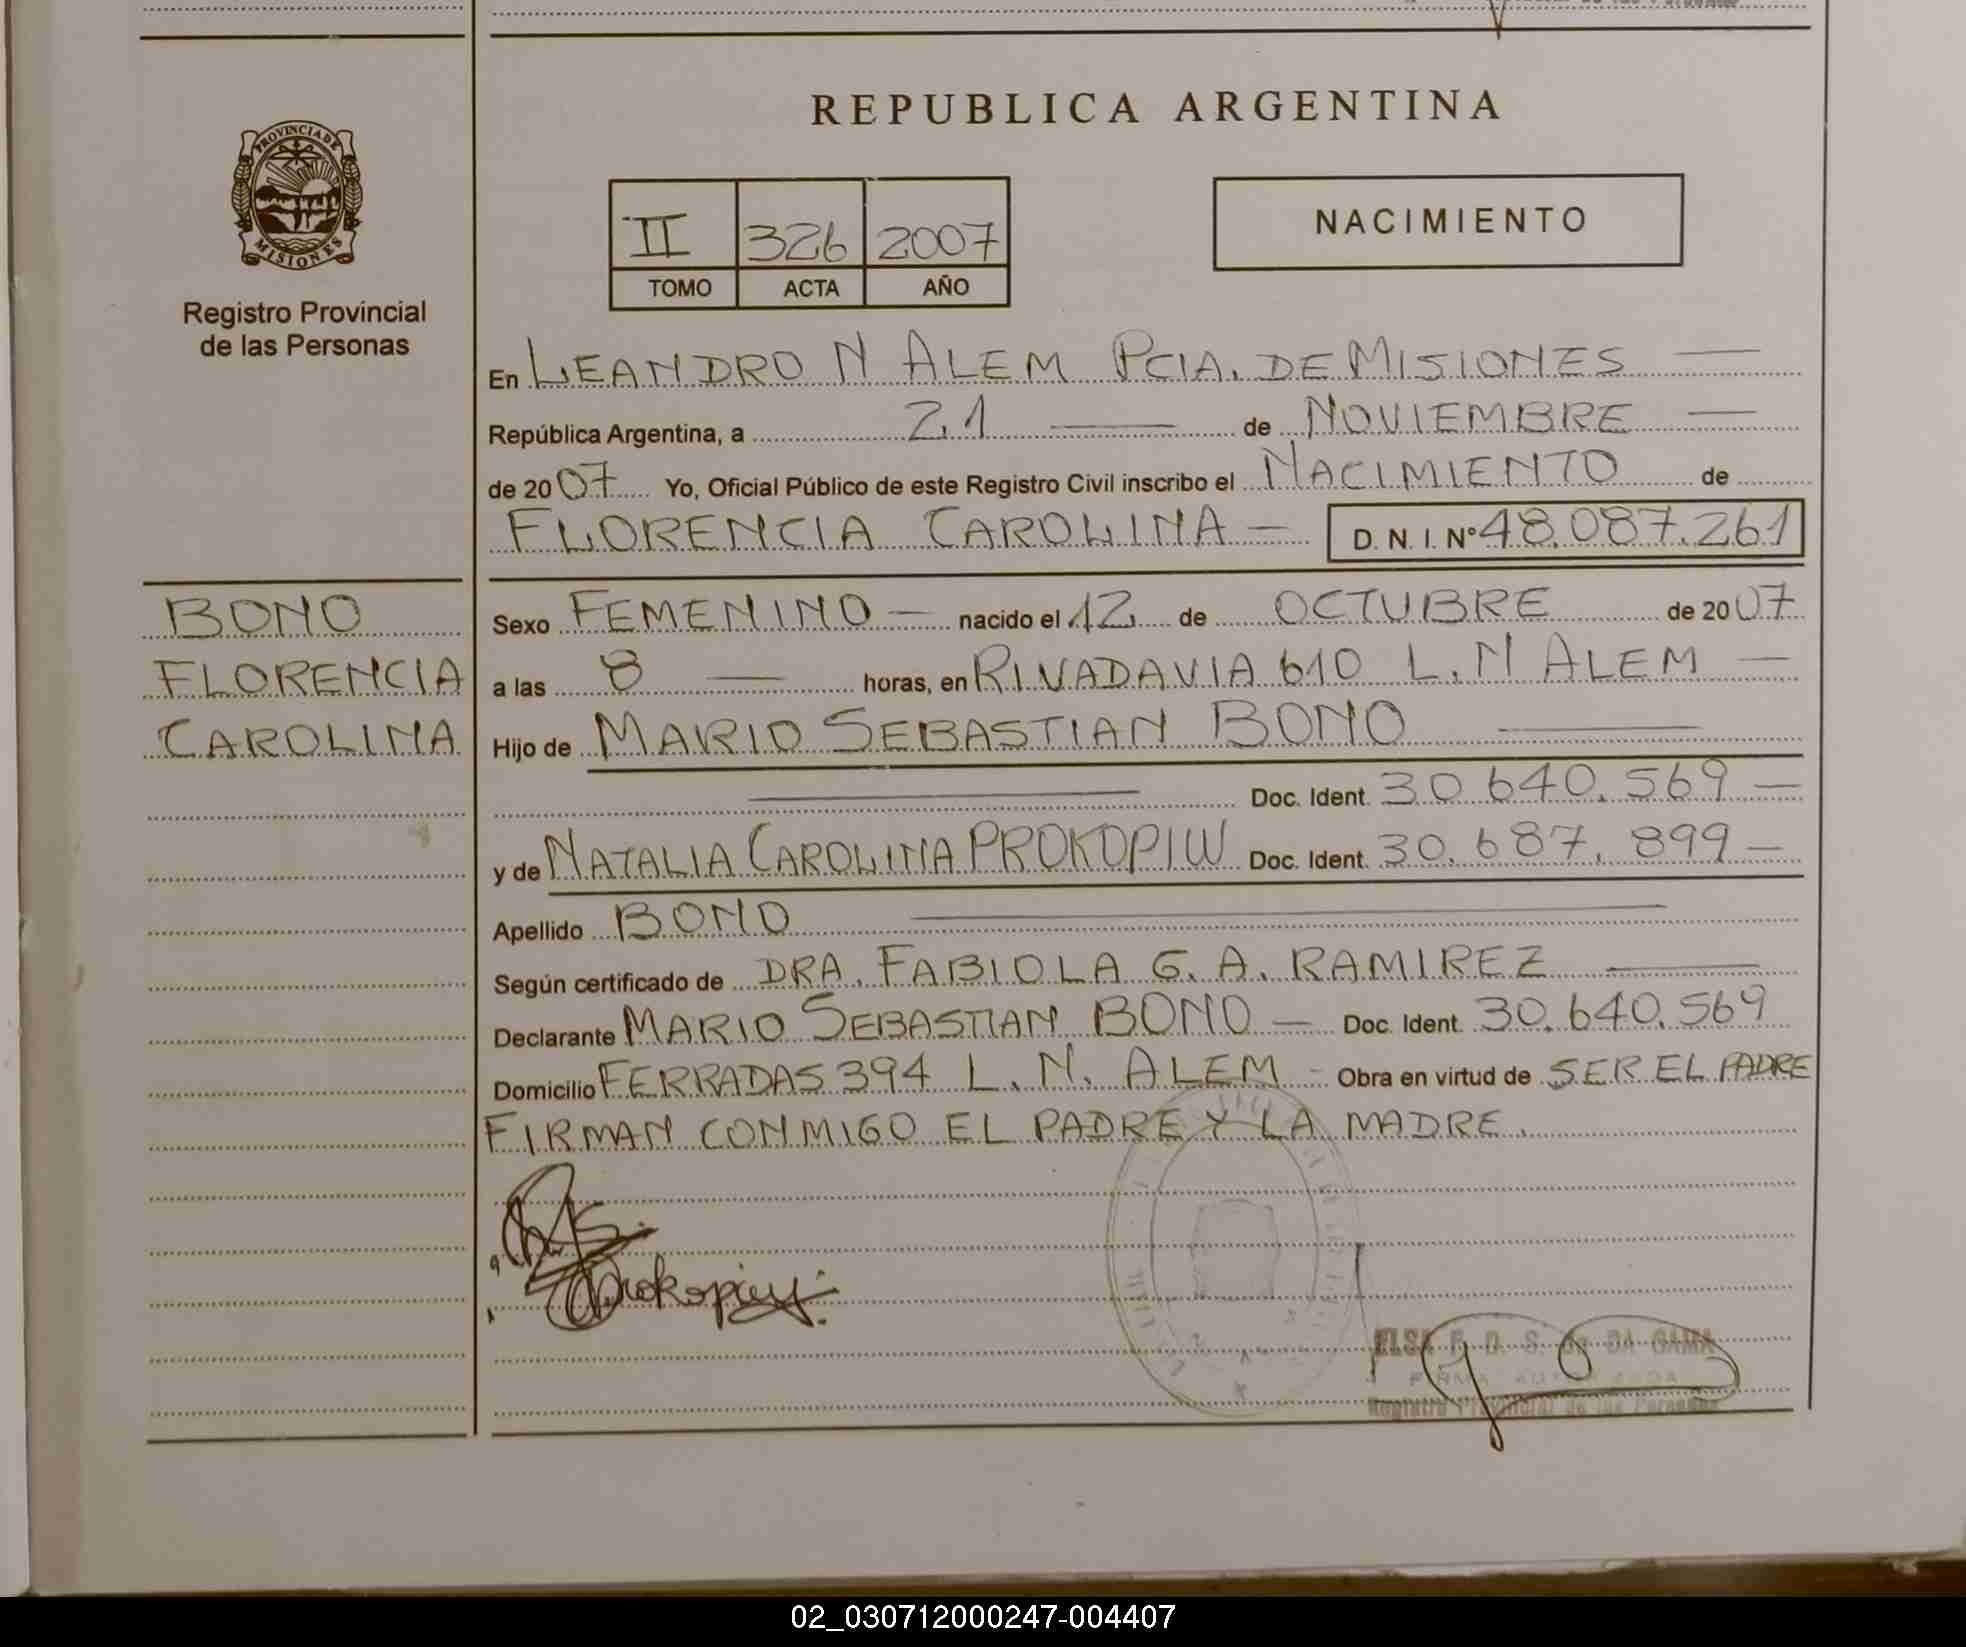 REPUBLICA ARGENTINA
PROVINCIA DE
MISIONES
Registro Provincial
de las Personas
II 326 2007
TOMO ACTA AÑO
NACIMIENTO
En LEANDRO N ALEM PCIA. DE MISIONES
República Argentina, a 21 de NOVIEMBRE
de 2007 Yo, Oficial Público de este Registro Civil inscribo el NACIMIENTO de
FLORENCIA CAROLINA D. N. I. Nº 48.087.261
BONO
FLORENCIA
CAROLINA
Sexo FEMENINO nacido el 12 de OCTUBRE de 2007
a las 8 horas, en RIVADAVIA 610 L. N ALEM
Hijo de MARIO SEBASTIAN BONO
Doc. Ident. 30 640.569
y de NATALIA CAROLINA PROKOPIW Doc. Ident. 30.687.899
Apellido BONO
Según certificado de DRA. FABIOLA G. A. RAMIREZ
Declarante MARIO SEBASTIAN BONO Doc. Ident. 30.640.569
Domicilio FERRADAS 394 L. N. ALEM Obra en virtud de SER EL PADRE
FIRMAN CONMIGO EL PADRE Y LA MADRE.
Prokopiw
ELSA F. D. S. de DA GAMA
Registro Provincial de las Personas
02_030712000247-004407